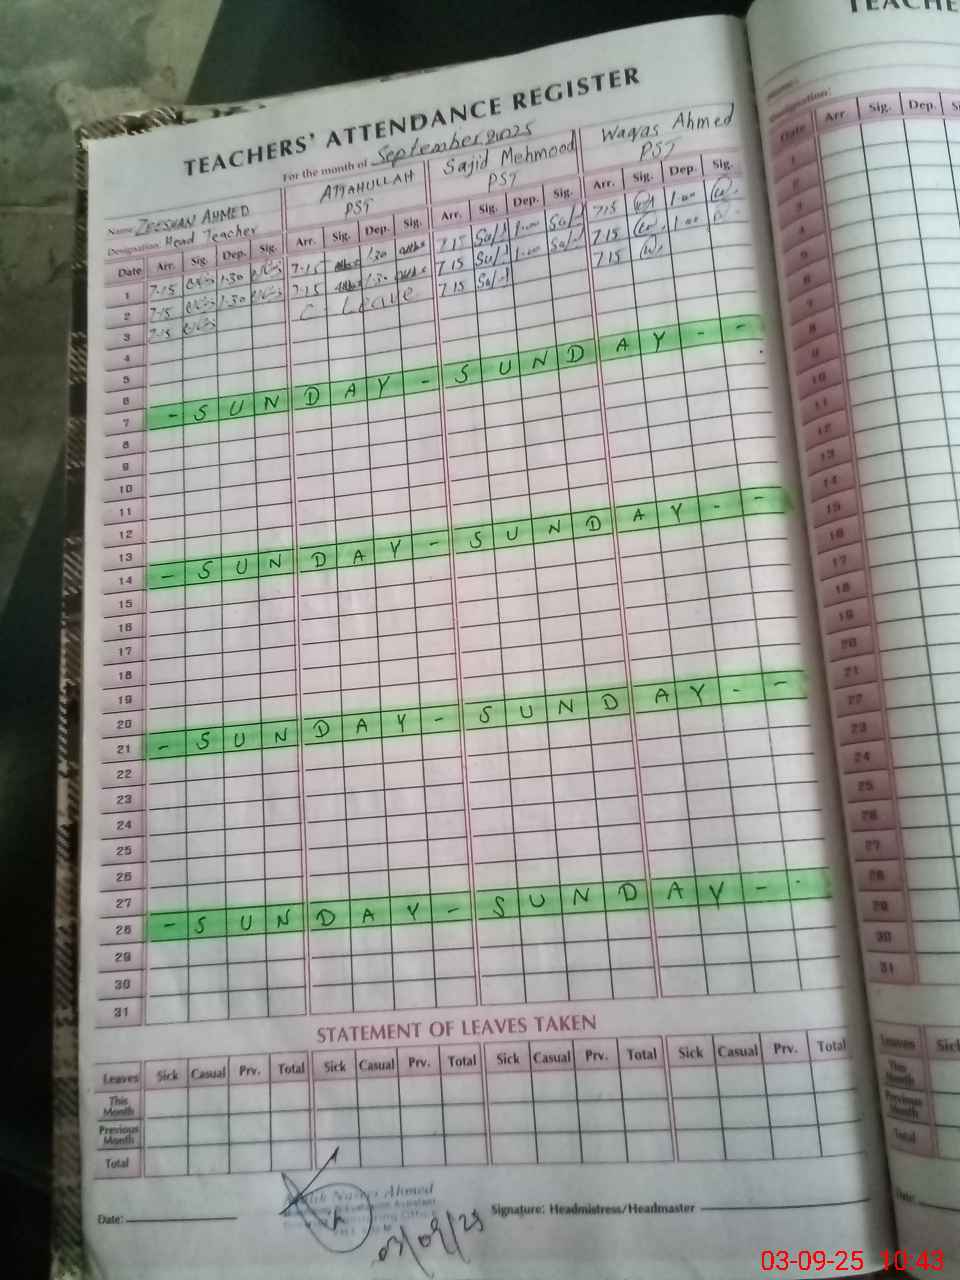 TEACHERS' ATTENDANCE REGISTER
For the month of September 2025
Name ZEESHAN AHMED ATTAHULLAH Sajid Mehmood Waqas Ahmed
Designation: Head Teacher PST PST PST
Date Arr. Sig. Dep. Sig. Arr. Sig. Dep. Sig. Arr. Sig. Dep. Sig. Arr. Sig. Dep. Sig.
1 7-15 1-30 7-15 1-30 7 15 1-00 7 15 1-00
2 7-15 1-30 7-15 1-30 7 15 1-00 7 15 1-00
3 7-15 C. Leave 7 15 7 15
4
5
6
7 - S U N D A Y - S U N D A Y - -
8
9
10
11
12
13
14 - S U N D A Y - S U N D A Y - -
15
16
17
18
19
20
21 - S U N D A Y - S U N D A Y - -
22
23
24
25
26
27
28 - S U N D A Y - S U N D A Y - -
29
30
31
STATEMENT OF LEAVES TAKEN
Leaves Sick Casual Prv. Total Sick Casual Prv. Total Sick Casual Prv. Total Sick Casual Prv. Total
This Month
Previous Month
Total
Date: Signature: Headmistress/Headmaster
Ahmed
03/09/25
TEACHE
Designation:
Date Arr. Sig. Dep.
1
2
3
4
5
6
7
8
9
10
11
12
13
14
15
16
17
18
19
20
21
22
23
24
25
26
27
28
29
30
31
Leaves Sick
This Month
Previous Month
Total
Date:
03-09-25 10:43